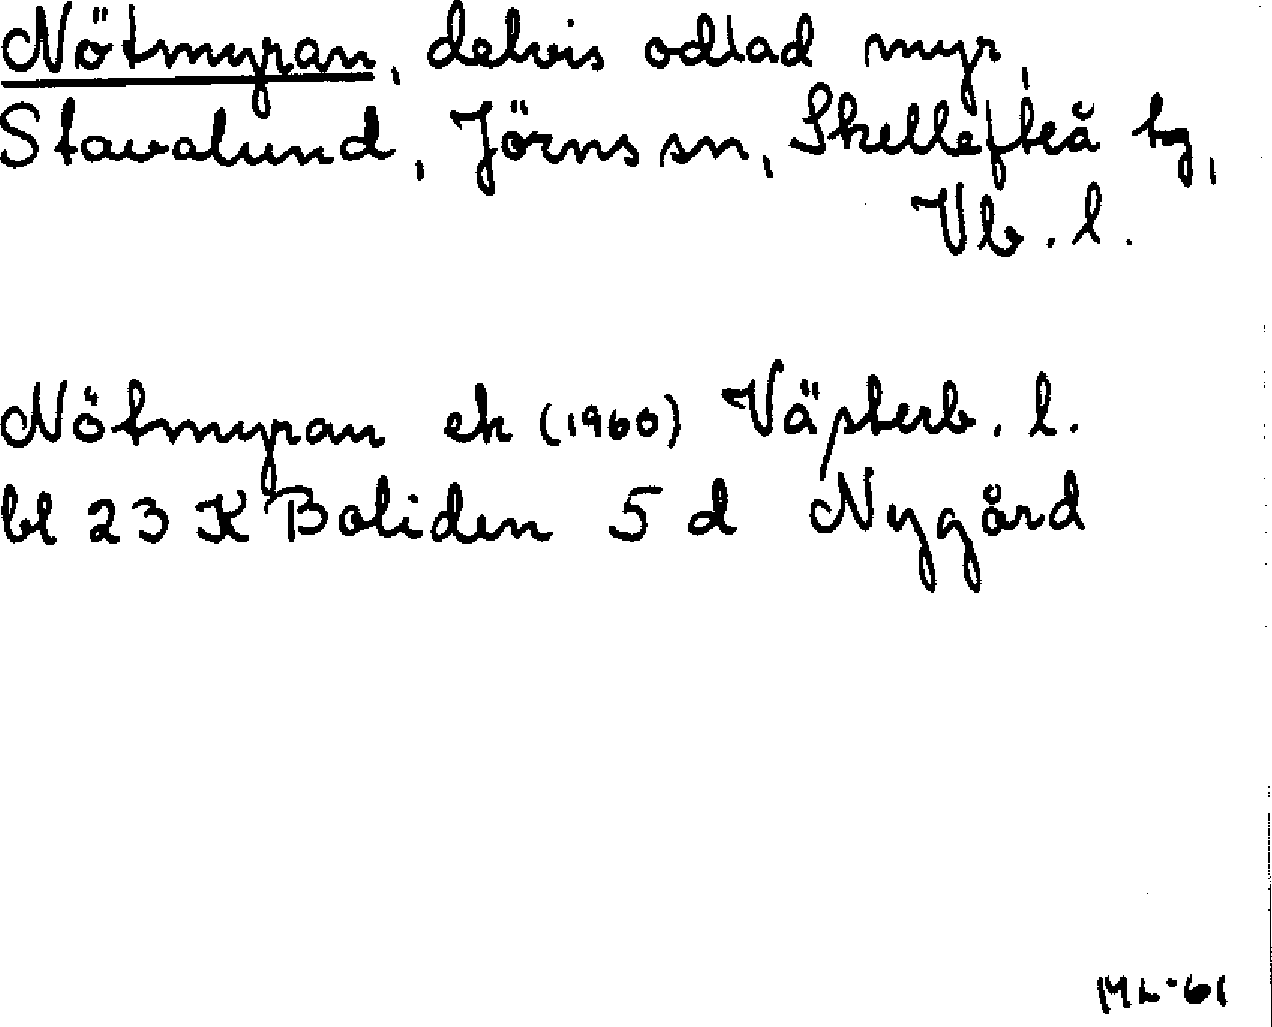 Nötmyran, delvis odlad myr,
Stavalund, Jörns sn, Skellefteå tg,
Vb. l.
Nötmyran ek (1960) Västerb. l.
bl 23 K Boliden 5 d Nygård
ML-61